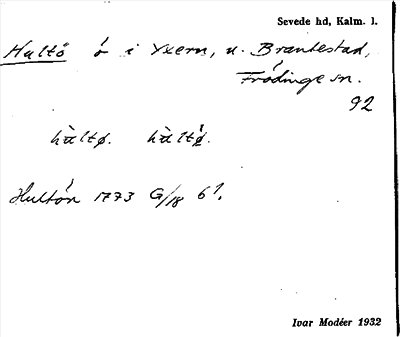 Sevede hd, Kalm. l.
Hultö ö i Yxern, u. Brantestad,
Frödinge sn.
92
hùltø. hùltø̣.
Hultön 1773 G/18 6¹.
Ivar Modéer 1932